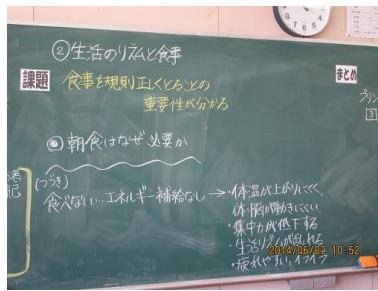 ②生活のリズムと食事
課題
食事を規則正しくとることの
重要性が分かる
まとめ
プリン
◎朝食はなぜ必要か
(つづき)
食べない…エネルギー補給なし→・体温が上がりにくく、
体・脳が働きにくい
・集中力が低下する
・生活リズムが乱れる
・疲れやすい、イライラ
2014/06/03 10:52